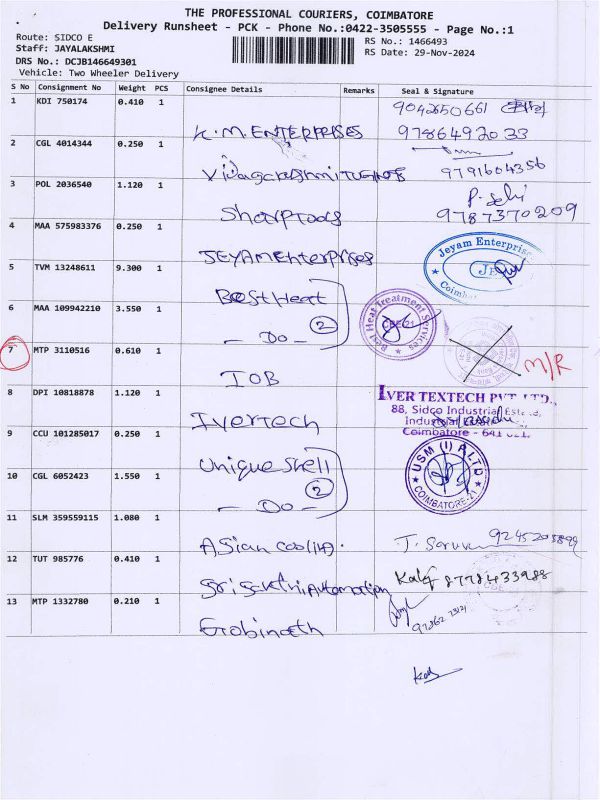 THE PROFESSIONAL COURIERS, COIMBATORE
Delivery Runsheet - PCK - Phone No.:0422-3505555 - Page No.:1
Route: SIDCO E
RS No.: 1466493
Staff: JAYALAKSHMI
RS Date: 29-Nov-2024
DRS No.: DCJB146649301
Vehicle: Two Wheeler Delivery
S No Consignment No Weight PCS Consignee Details Remarks Seal & Signature
1 KDI 750174 0.410 1 K.M. ENTERPRISES 9042650661
9786492033
2 CGL 4014344 0.250 1 9791604356
3 POL 2036540 1.120 1 Sharptools
9787370209
4 MAA 575983376 0.250 1 JEYAM Enterprises
Jeyam Enterprise
5 TVM 13248611 9.300 1 Best Heat
6 MAA 109942210 3.550 1 - Do - 2
Best Heat Treatment Services
CBE-21
7 MTP 3110516 0.610 1 IOB M/R
8 DPI 10818878 1.120 1 Ivertech
IVER TEXTECH PVT. LTD.,
88, Sidco Industrial Estate,
Coimbatore - 641 021.
9 CCU 101285017 0.250 1 Unique Shell
10 CGL 6052423 1.550 1 - Do - 2
USM (I) P LTD
COIMBATORE-21
11 SLM 359559115 1.080 1 Asian
12 TUT 985776 0.410 1 Sri Sakthi Automation 8778433988
13 MTP 1332780 0.210 1 Gobinath